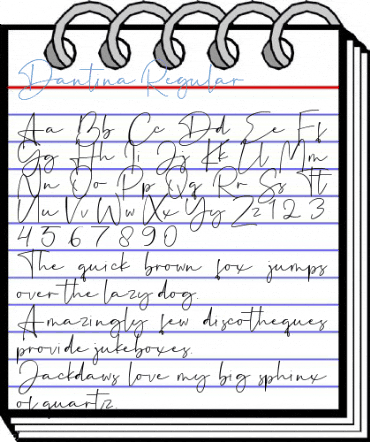 Dantina Regular
Aa Bb Cc Dd Ee Ff
Gg Hh Ii Jj Kk Ll Mm
Nn Oo Pp Qq Rr Ss Tt
Uu Vv Ww Xx Yy Zz 1 2 3
4 5 6 7 8 9 0
The quick brown fox jumps
over the lazy dog.
Amazingly few discotheques
provide jukeboxes.
Jackdaws love my big sphinx
of quartz.